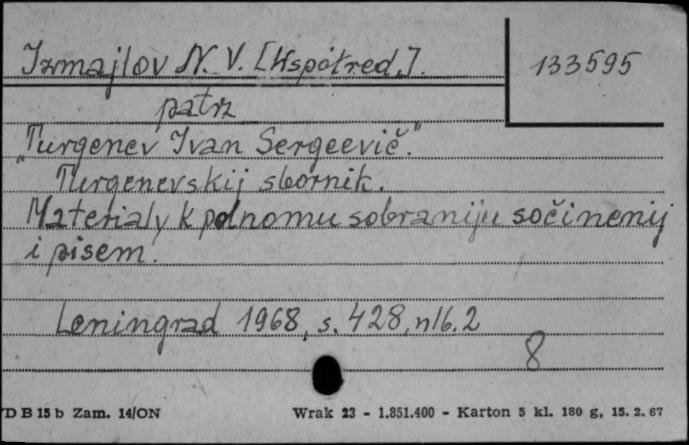 Izmajlov N. V. [Współred.].
133595
patrz
"Turgenev Ivan Sergeevič."
Turgenevskij sbornik.
Materialy k polnomu sobraniju sočinenij
i pisem.
Leningrad 1968, s. 428, nlb. 2
8
D B 15 b Zam. 14/ON
Wrak 23 - 1.851.400 - Karton 5 kl. 180 g, 15. 2. 67